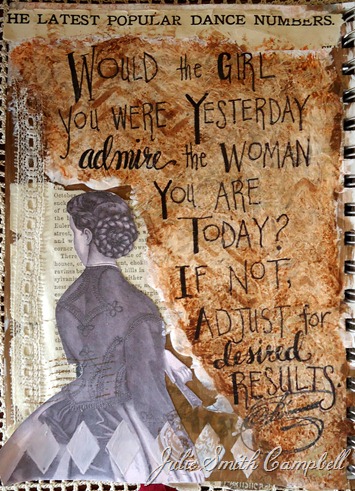 HE LATEST POPULAR DANCE NUMBERS.
WOULD the GIRL
YOU WERE YESTERDAY
admire the WOMAN
YOU ARE
TODAY?
IF NOT,
ADJUST for
desired
RESULTS.
Julie Smith Campbell